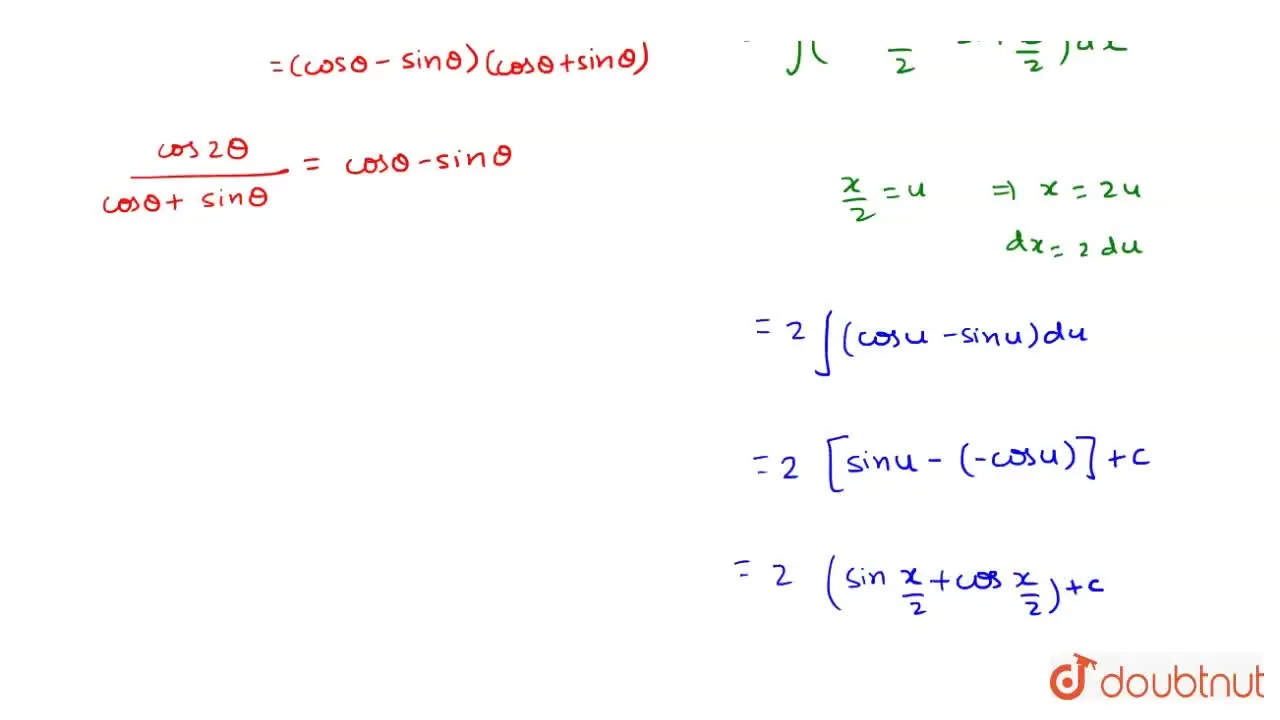 = (cosθ - sinθ) (cosθ + sinθ)
cos2θ / (cosθ + sinθ) = cosθ - sinθ
x/2 = u ⇒ x = 2u
dx = 2 du
= 2 ∫ (cosu - sinu) du
= 2 [sinu - (-cosu)] + c
= 2 (sin x/2 + cos x/2) + c
doubtnut